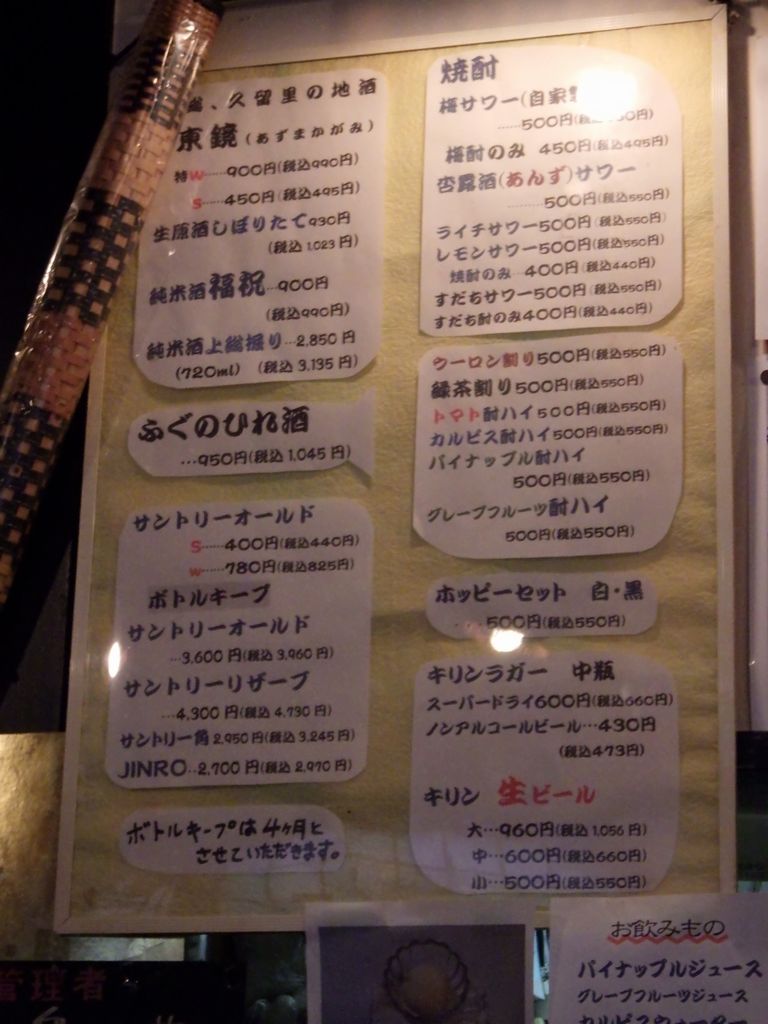 、久留里の地酒
東鏡(あずまかがみ)
特W……900円(税込990円)
S……450円(税込495円)
生原酒しぼりたて930円
(税込1,023円)
純米酒福祝…900円
(税込990円)
純米酒上総掘り…2,850円
(720ml) (税込3,135円)
ふぐのひれ酒
…950円(税込1,045円)
サントリーオールド
S……400円(税込440円)
W……780円(税込825円)
ボトルキープ
サントリーオールド
…3,600円(税込3,960円)
サントリーリザーブ
…4,300円(税込4,730円)
サントリー角2,950円(税込3,245円)
JINRO…2,700円(税込2,970円)
ボトルキープは4ヶ月と
させていただきます。
焼酎
梅サワー(自家
……500円(税込
梅酎のみ 450円(税込495円)
杏露酒(あんず)サワー
………500円(税込550円)
ライチサワー500円(税込550円)
レモンサワー500円(税込550円)
焼酎のみ…400円(税込440円)
すだちサワー500円(税込550円)
すだち酎のみ400円(税込440円)
ウーロン割り500円(税込550円)
緑茶割り500円(税込550円)
トマト酎ハイ500円(税込550円)
カルピス酎ハイ500円(税込550円)
パイナップル酎ハイ
500円(税込550円)
グレープフルーツ酎ハイ
500円(税込550円)
ホッピーセット 白・黒
…500円(税込550円)
キリンラガー 中瓶
スーパードライ600円(税込660円)
ノンアルコールビール…430円
(税込473円)
キリン 生ビール
大…960円(税込1,056円)
中…600円(税込660円)
小…500円(税込550円)
お飲みもの
パイナップルジュース
グレープフルーツジュース
カルピスウォーター
管理者